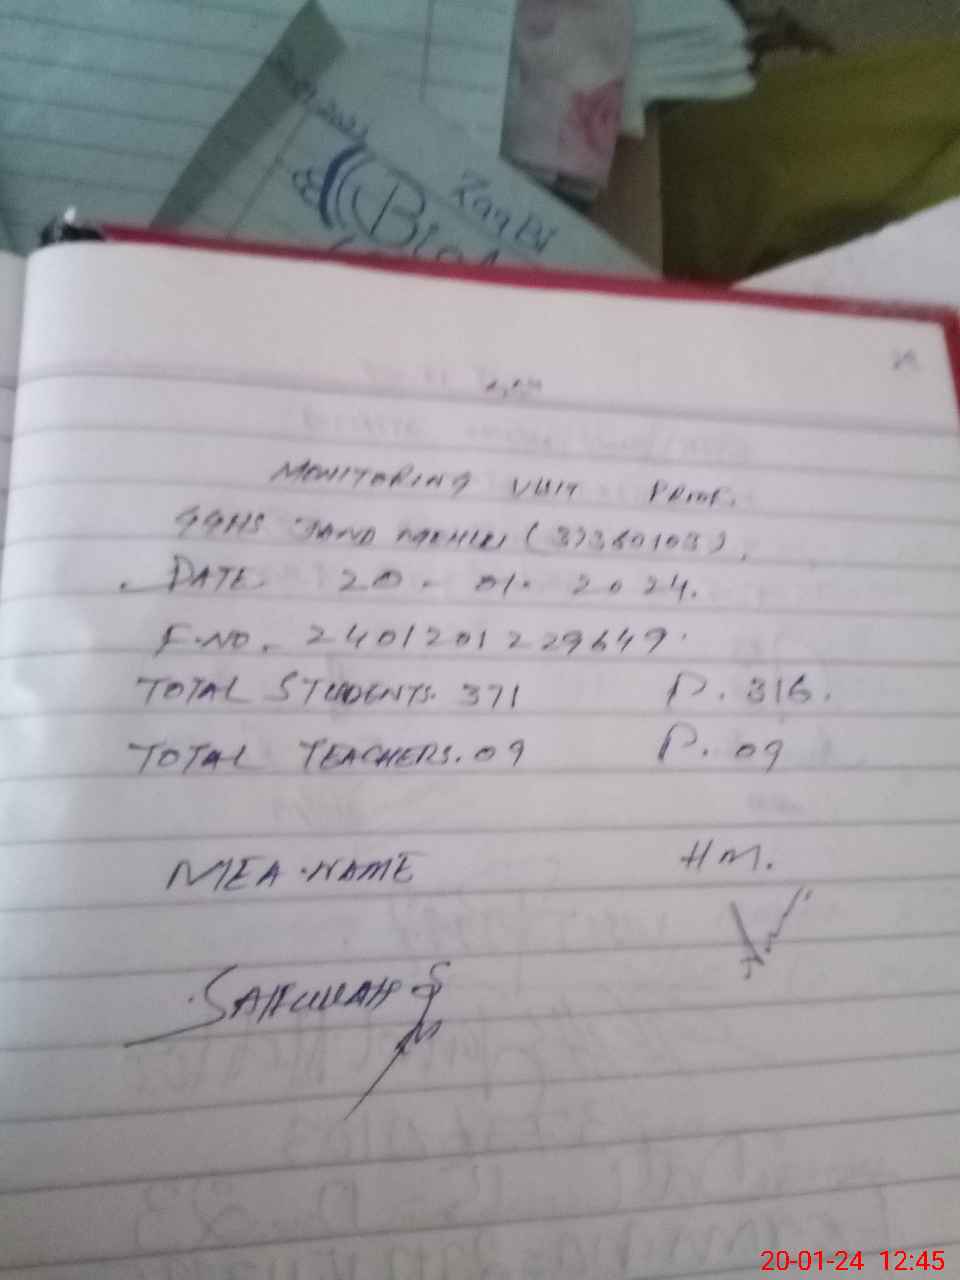 RaqBi
Biol
MONITORING VISIT PROOF.
GGHS JAND (37360103).
DATE. 20-01-2024.
F.NO. 2401201229649.
TOTAL STUDENTS. 371 P. 316.
TOTAL TEACHERS. 09 P. 09
MEA NAME HM.
SAIFULLAH
20-01-24 12:45